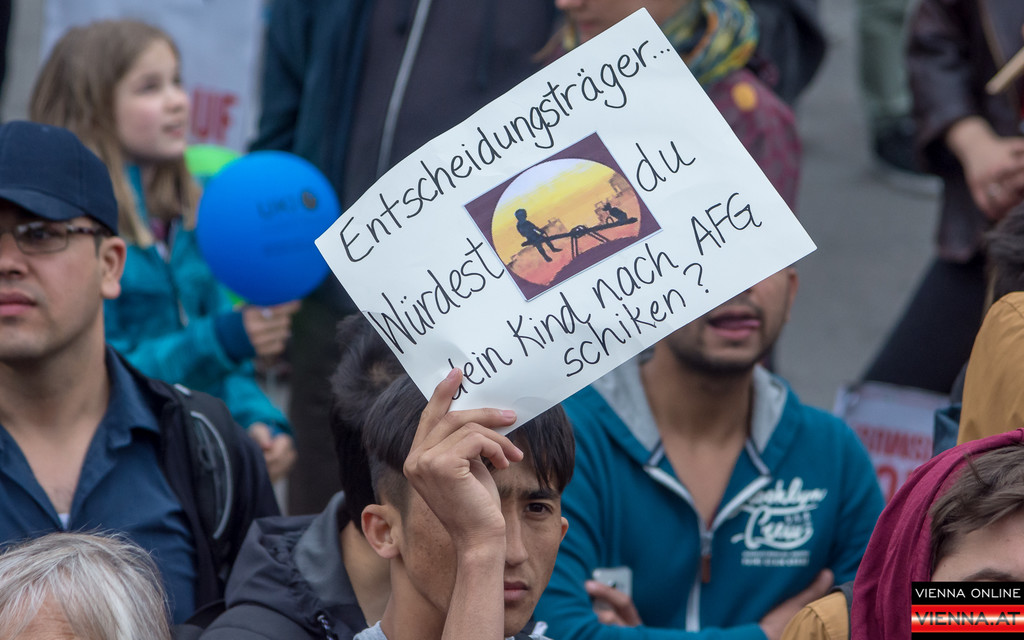 Entscheidungsträger...
Würdest du
dein Kind nach AFG
schiken?
Brooklyn
VIENNA ONLINE
VIENNA.AT